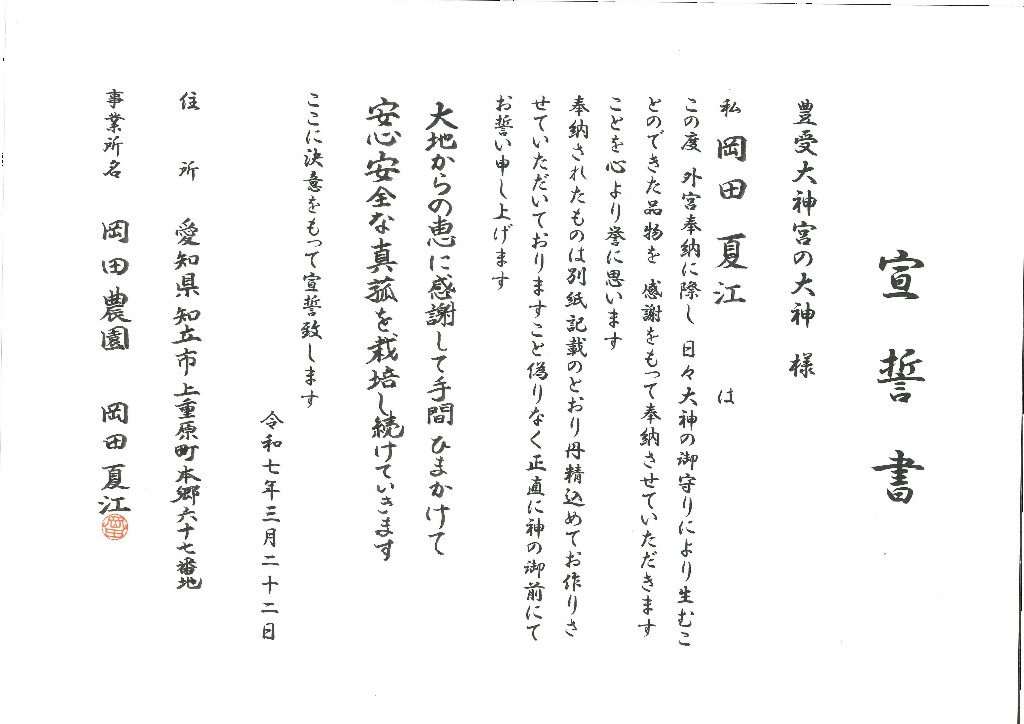 宣誓書
豊受大神宮の大神 様
私 岡田 夏江 は
この度 外宮奉納に際し 日々大神の御守りにより生むこ
とのできた品物を 感謝をもって奉納させていただきます
ことを心より誉に思います
奉納されたものは別紙記載のとおり丹精込めてお作りさ
せていただいておりますこと偽りなく正直に神の御前にて
お誓い申し上げます
大地からの恵に感謝して手間ひまかけて
安心安全な真菰を栽培し続けていきます
ここに決意をもって宣誓致します
令和七年三月二十二日
住所 愛知県知立市上重原町本郷六十七番地
事業所名 岡田農園 岡田夏江
岡田